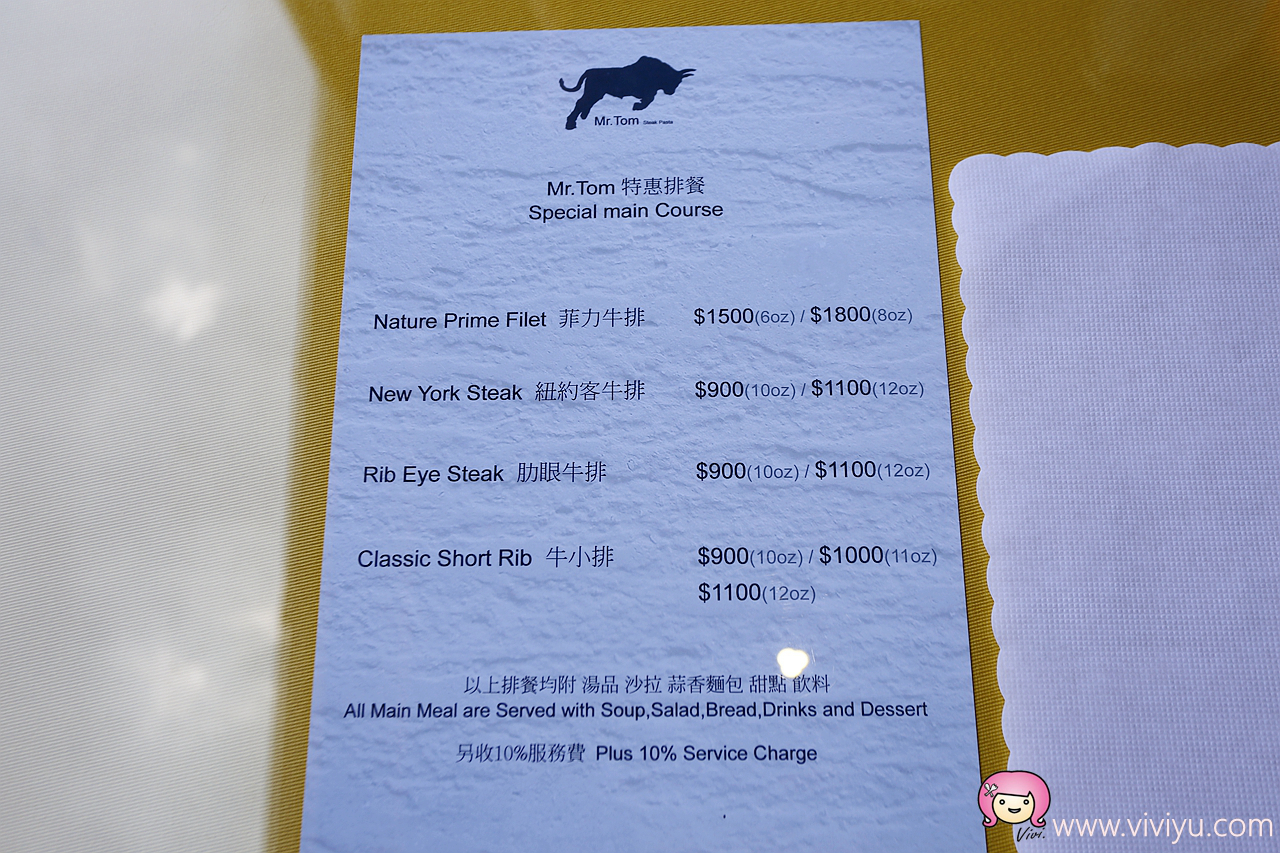 Mr.Tom Steak Pasta
Mr.Tom 特惠排餐
Special main Course
Nature Prime Filet 菲力牛排 $1500(6oz) / $1800(8oz)
New York Steak 紐約客牛排 $900(10oz) / $1100(12oz)
Rib Eye Steak 肋眼牛排 $900(10oz) / $1100(12oz)
Classic Short Rib 牛小排 $900(10oz) / $1000(11oz)
$1100(12oz)
以上排餐均附 湯品 沙拉 蒜香麵包 甜點 飲料
All Main Meal are Served with Soup,Salad,Bread,Drinks and Dessert
另收10%服務費 Plus 10% Service Charge
Vivi.
www.viviyu.com